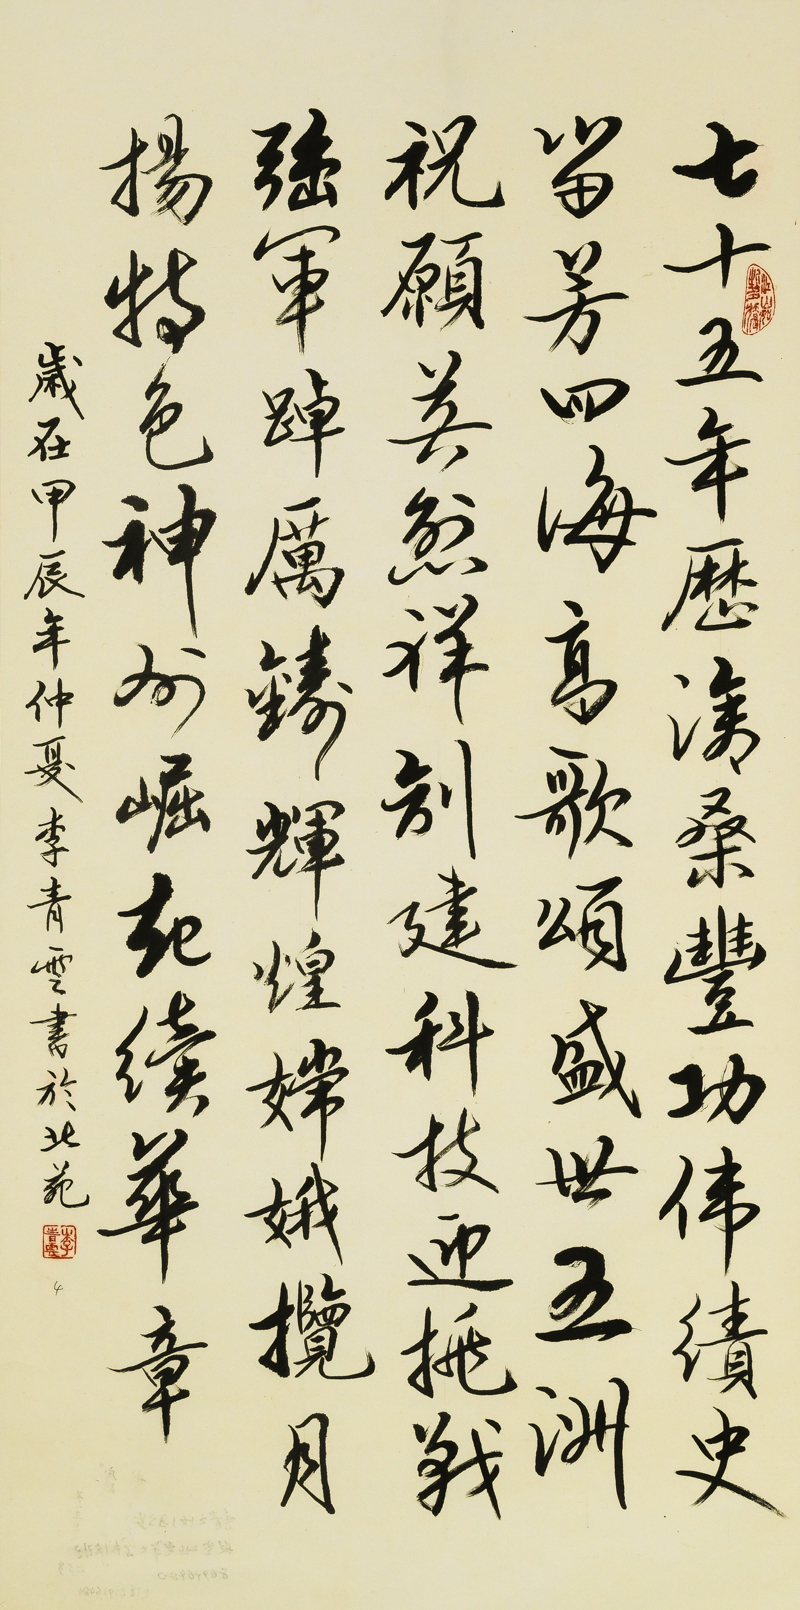 七十五年歷滄桑豐功伟績史
留芳四海高歌頌盛世五洲
祝願英烈祥創建科技迎挑戰
强軍踔厲鑄輝煌嫦娥攬月
揚特色神州崛起續華章
歲在甲辰年仲夏李青雲書於北苑
李青雲
4